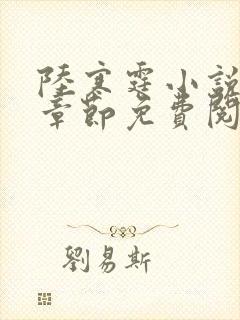 陸寒霆小說
章節免費閱
劉易斯